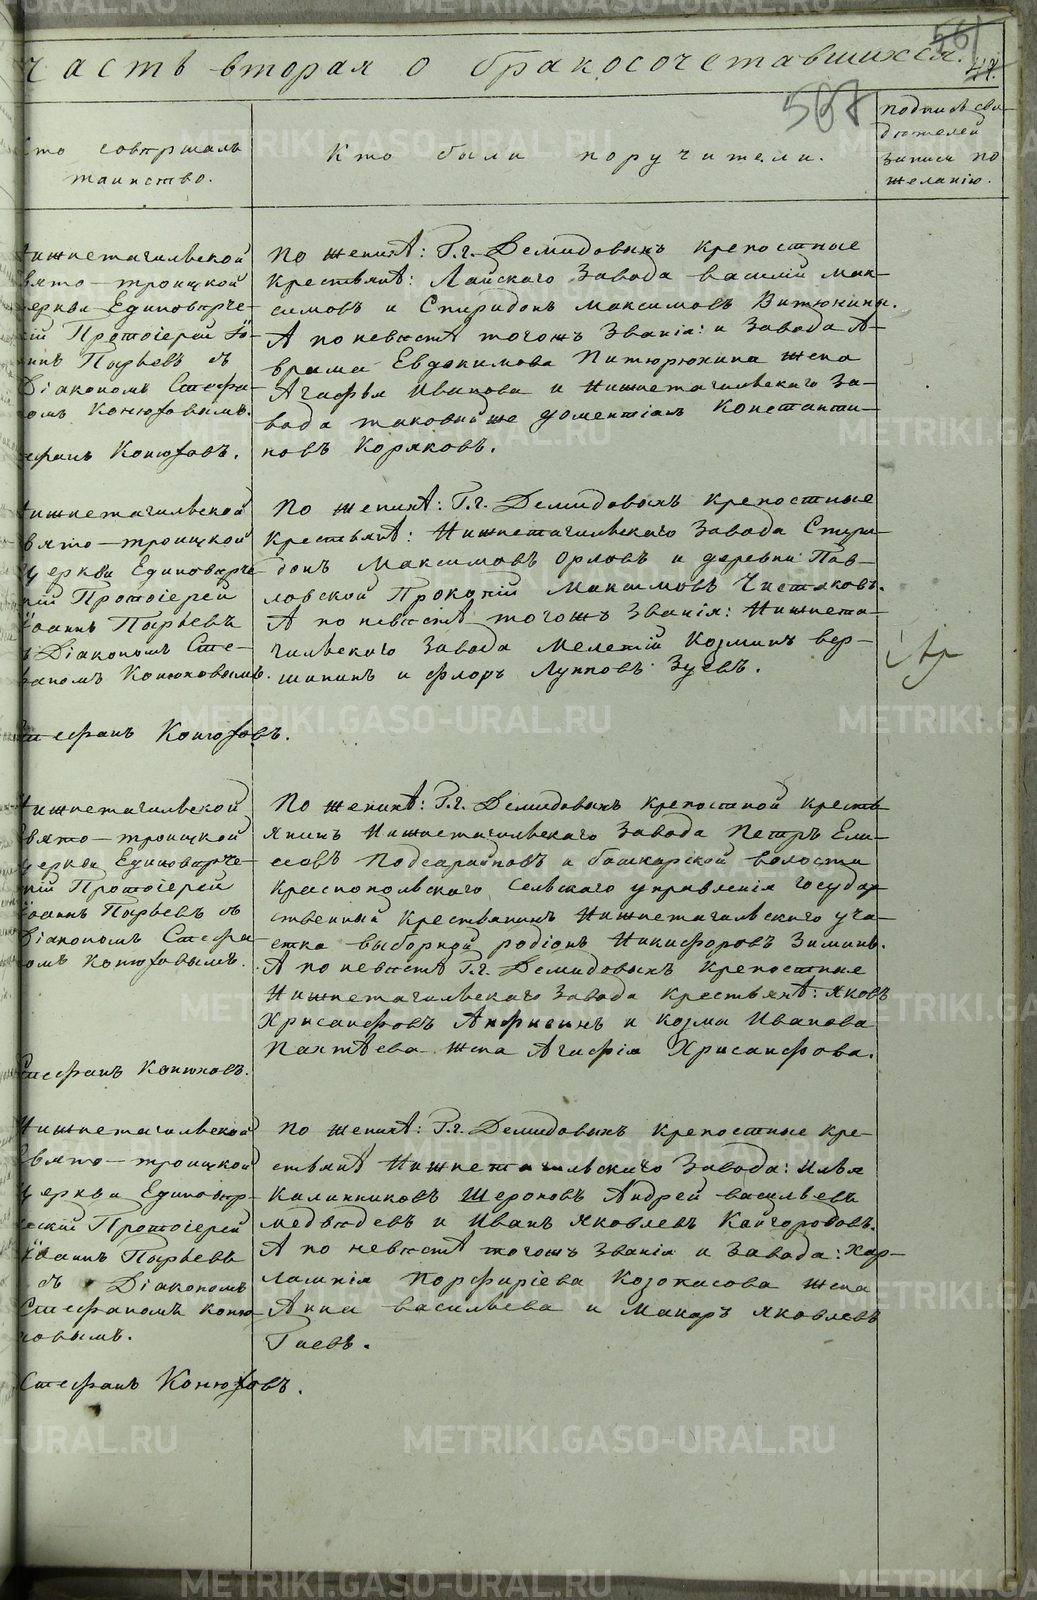 часть вторая о бракосочетавшихся.
567
кто совершалъ
таинство.
Кто были поручители.
подпись сви-
дѣтелей
записи по
желанію.
Нижнетагильской
Свято-троицкой
церкви Единовѣрче-
скій Протоіерей Іо-
аннъ Пырьевъ съ
Діакономъ Стефа-
номъ Конюховымъ.
Стефанъ Конюховъ.
По женихѣ: Г.г. Демидовыхъ крепостные
крестьянѣ: Лайскаго Завода василій Мак-
симовъ и Спиридонъ Максимовъ Витюнины.
А по невѣстѣ тогожъ званія: и Завода А-
врама Евдокимова Питюрюхина жена
Агафья Иванова и Нижнетагильскаго за-
вода таковыйже Доментіанъ Константи-
новъ Коряковъ.
Нижнетагильской
Свято-троицкой
Церкви Единовѣрче-
скій Протоіерей
Іоаннъ Пырьевъ
съ Діакономъ Сте-
фаномъ Конюховымъ.
Стефанъ Конюховъ.
По женихѣ: Г.г. Демидовыхъ крепостные
крестьянѣ: Нижнетагильскаго Завода Спири-
донъ Максимовъ Орловъ и деревни Пав-
ловской Прокопій Максимовъ Чистяковъ.
А по невѣстѣ тогожъ званія: Нижнета-
гильскаго Завода Мелетій Козминъ вер-
шининъ и Флоръ Лупповъ Зуевъ.
Нижнетагильской
Свято-троицкой
Церкви Единовѣрче-
скій Протоіерей
Іоаннъ Пырьевъ съ
Діакономъ Стефа-
номъ Конюховымъ.
Стефанъ Конюховъ.
По женихѣ: Г.г. Демидовыхъ крепостной кресть-
янинъ Нижнетагильскаго Завода Петръ Ели-
сѣевъ Подсарайновъ и башкарской волости
Краснопольскаго сельскаго управленія государ-
ственный крестьянинъ Нижнетагильскаго уча-
стка выборной родіонъ Никифоровъ Зиминъ.
А по невѣстѣ Г.г. Демидовыхъ крепостные
Нижнетагильскаго Завода крестьянѣ: Яковъ
Хрисанфовъ Анфиинъ и Козма Иванова
Пантѣева жена Агафія Хрисанфова.
Нижнетагильской
Свято-троицкой
Церкви Единовѣр-
ческій Протоіерей
Іоаннъ Пырьевъ
съ Діакономъ
Стефаномъ Коню-
ховымъ.
Стефанъ Конюховъ.
По женихѣ: Г.г. Демидовыхъ крепостные кре-
стьянѣ Нижнетагильскаго Завода: Илья
Калинниковъ Шероновъ Андрей васильевъ
медвѣдевъ и Иванъ Яковлевъ Кайгородовъ.
А по невѣстѣ тогожъ званія и Завода: Хар-
лампія Порфиріева Козопасова жена
Анна васильева и Макаръ Яковлевъ
Гаевъ.
METRIKI.GASO-URAL.RU